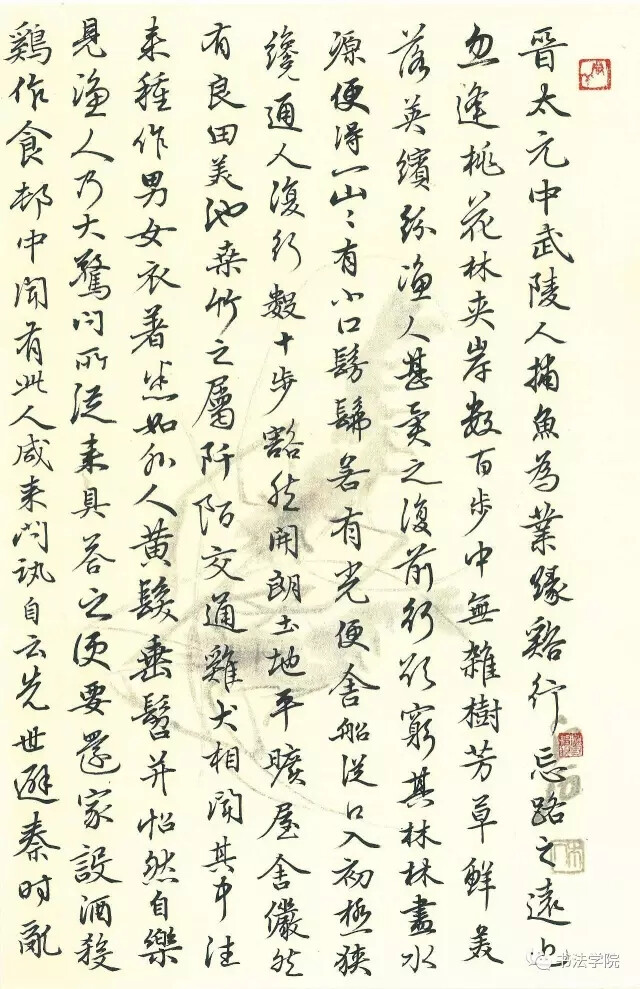 晉太元中武陵人捕魚為業緣谿行忘路之遠近
忽逢桃花林夾岸數百步中無雜樹芳草鮮美
落英繽紛漁人甚異之復前行欲窮其林林盡水
源便得一山〻有小口髣髴若有光便舍船從口入初極狹
纔通人復行數十步豁然開朗土地平曠屋舍儼然
有良田美池桑竹之屬阡陌交通雞犬相聞其中往
來種作男女衣著悉如外人黃髮垂髫并怡然自樂
見漁人乃大驚問所從來具答之便要還家設酒殺
鷄作食邨中聞有此人咸來問訊自云先世避秦時亂
书法学院